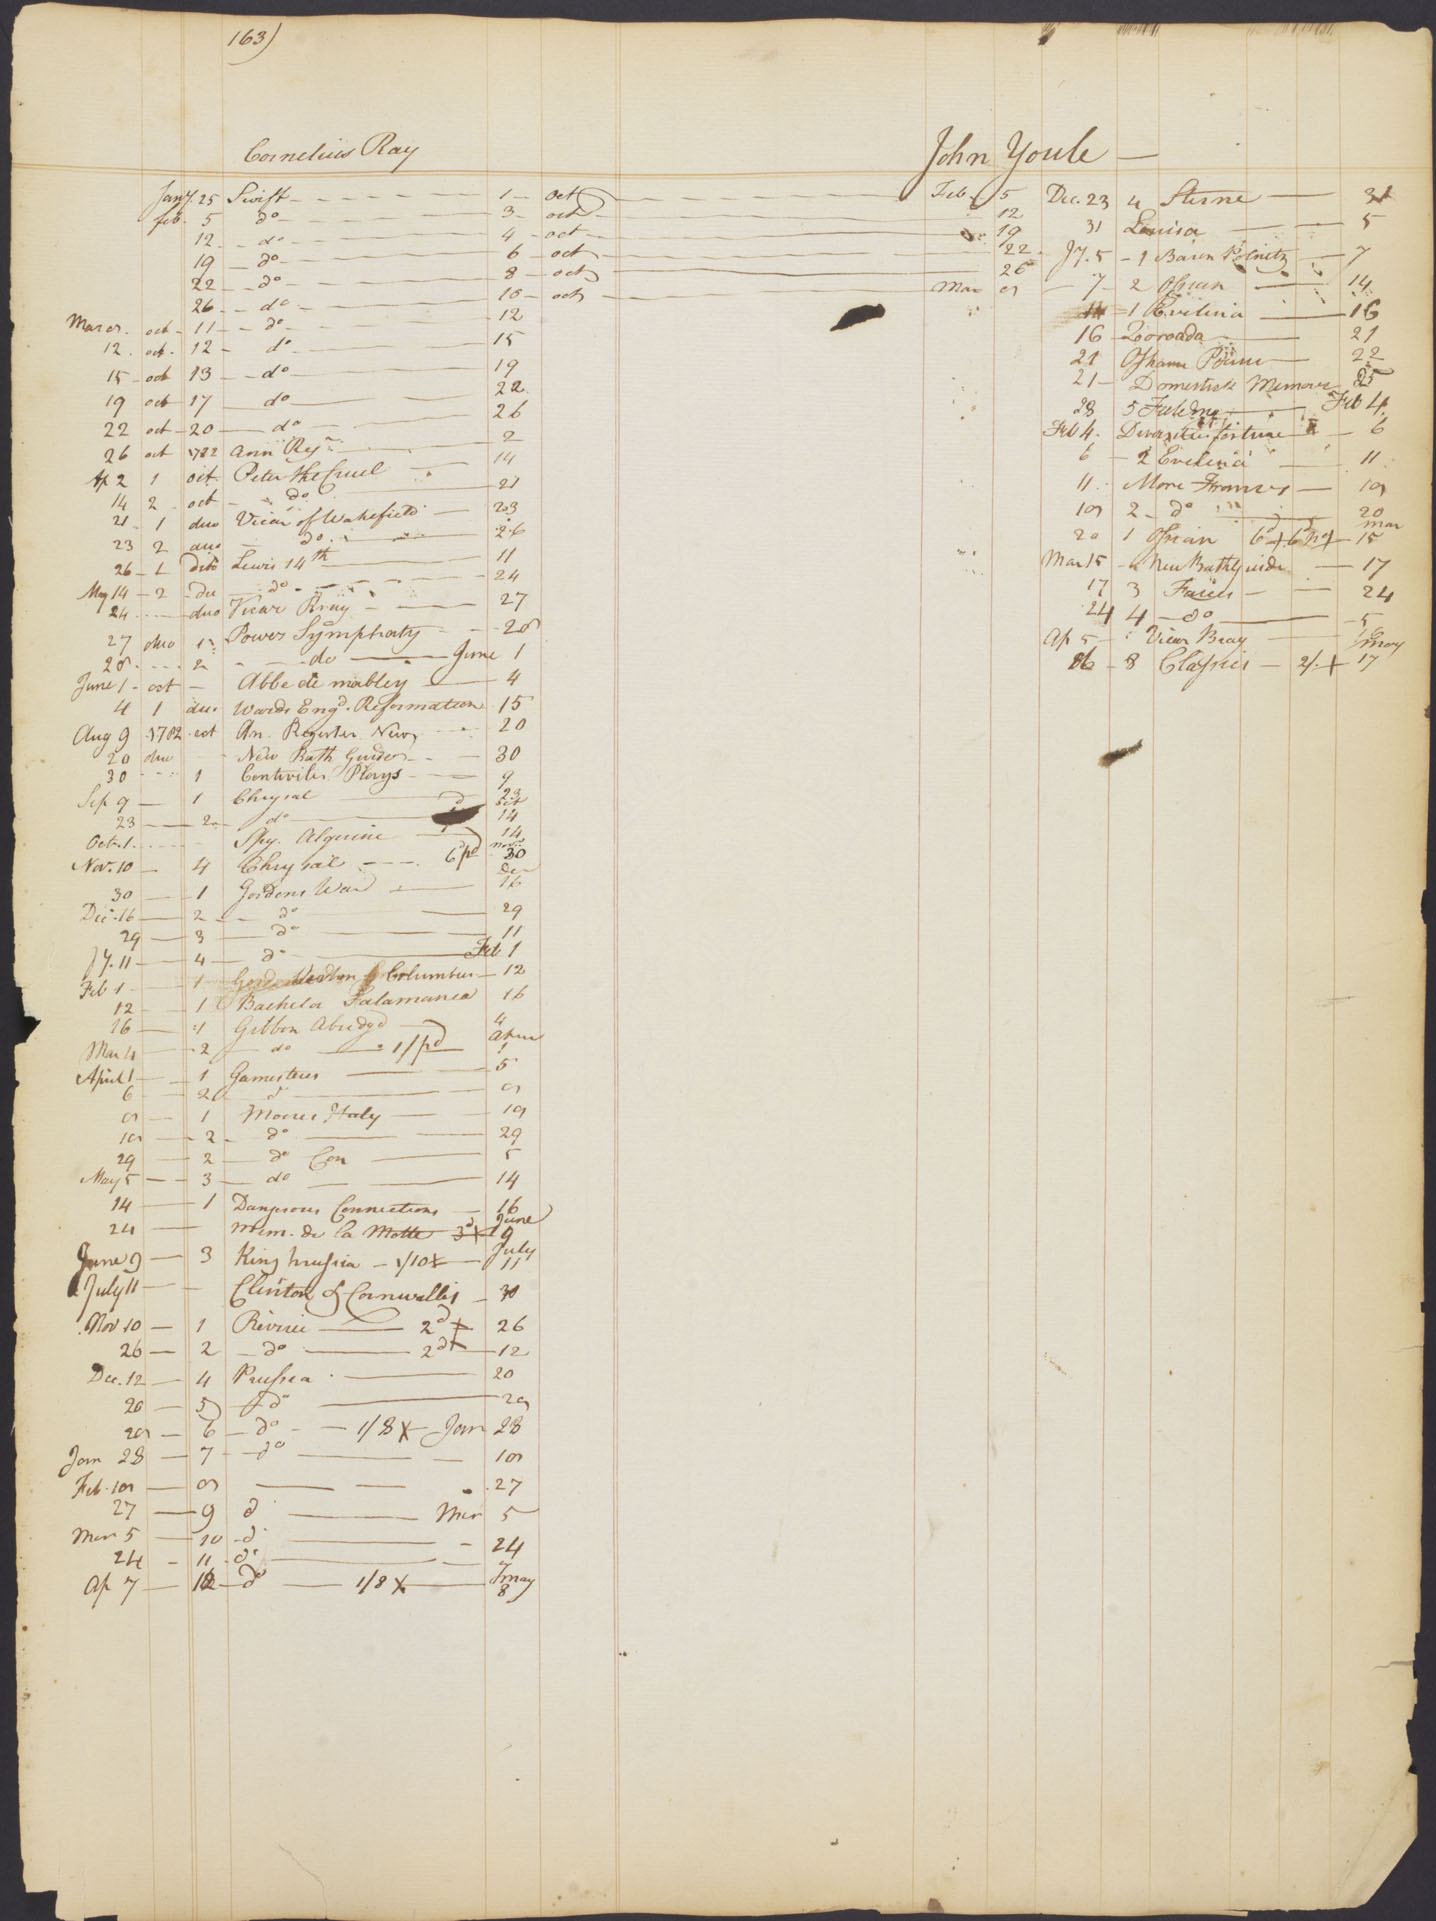 163)
Cornelius Ray
Jany. 25 Swift 1 oct Feb 5
feb. 5 do 3 oct 12
12 do 4 oct 19
19 do 6 oct 22
22 do 8 oct 26
26 do 10 oct Mar 8
Mar 8. oct 11 do 12
12. oct. 12 do 15
15 oct 13 do 19
19 oct 17 do 22
22 oct 20 do 26
26 oct 1782 Ann Regr. 2
Ap 2 1 oct Peter the Cruel 14
14 2 oct do 21
21 1 duo Vicar of Wakefield 23
23 2 duo do 26
26 1 ditto Lewis 14th 11
May 14 2 du do 24
24 duo Vicar Bray 27
27 duo 1 Power Symphaty 28
28 2 do June 1
June 1 oct Abbe de mabley 4
4 1 duo Wards Engd. Reformation 15
Aug 9 1782 oct An. Register New 20
20 duo New Bath Guide 30
30 1 Centivilis Plays 9
Sep 9 1 Chrysal 23
23 2 do oct 14
Oct. 1 Spy. Algerine 14
Nov. 10 4 Chrysal 6d pd Novr 30
30 1 Gordons War Dec 16
Dec. 16 2 do 29
29 3 do 11
Jy. 11 4 do Feb 1
Feb 1 1 Columbus 12
12 1 Bachelor Salamanca 16
16 1 Gibbon Abridgd 4
Mar 4 2 do 1/ pd Aprn 1
April 1 1 Gamesters 5
6 2 d 8
8 1 Moores Italy 18
18 2 do 29
29 2 do Con 5
May 5 3 do 14
14 1 Dangerous Connections 16
24 Mem. de la Motte 3d X June 9
June 9 3 King prussia 1/10 X July 11
July 11 Clinton & Cornwallis 30
Nov 10 1 Riviere 2d X 26
26 2 do 2d X 12
Dec. 12 4 Prussia 20
20 5 do 28
28 6 do 1/8 X Jan 28
Jan 28 7 do 18
Feb. 18 8 27
27 9 d Mar 5
Mar 5 10 d 24
24 11 do
Ap 7 12 do 1/8 X May 8
John Youle
Dec. 23 4 Sterne 31
31 Louisa 5
Jy. 5 1 Baron Polnitz 7
7 2 Ossian 14
14 1 Evelina 16
16 Zoroada 21
21 22
21 Domestick Memoirs 25
28 5 Fielding Feb 4
Feb 4. fortune 6
6 2 Evelina 11
11 More France 18
18 2 do 20
20 1 Ossian 6d X 6d Mar 15
Mar 15 New Bath Guide 17
17 3 24
24 4 do 5
Ap 5 Vicar Bray
26 8 Classics 2/ X May 17